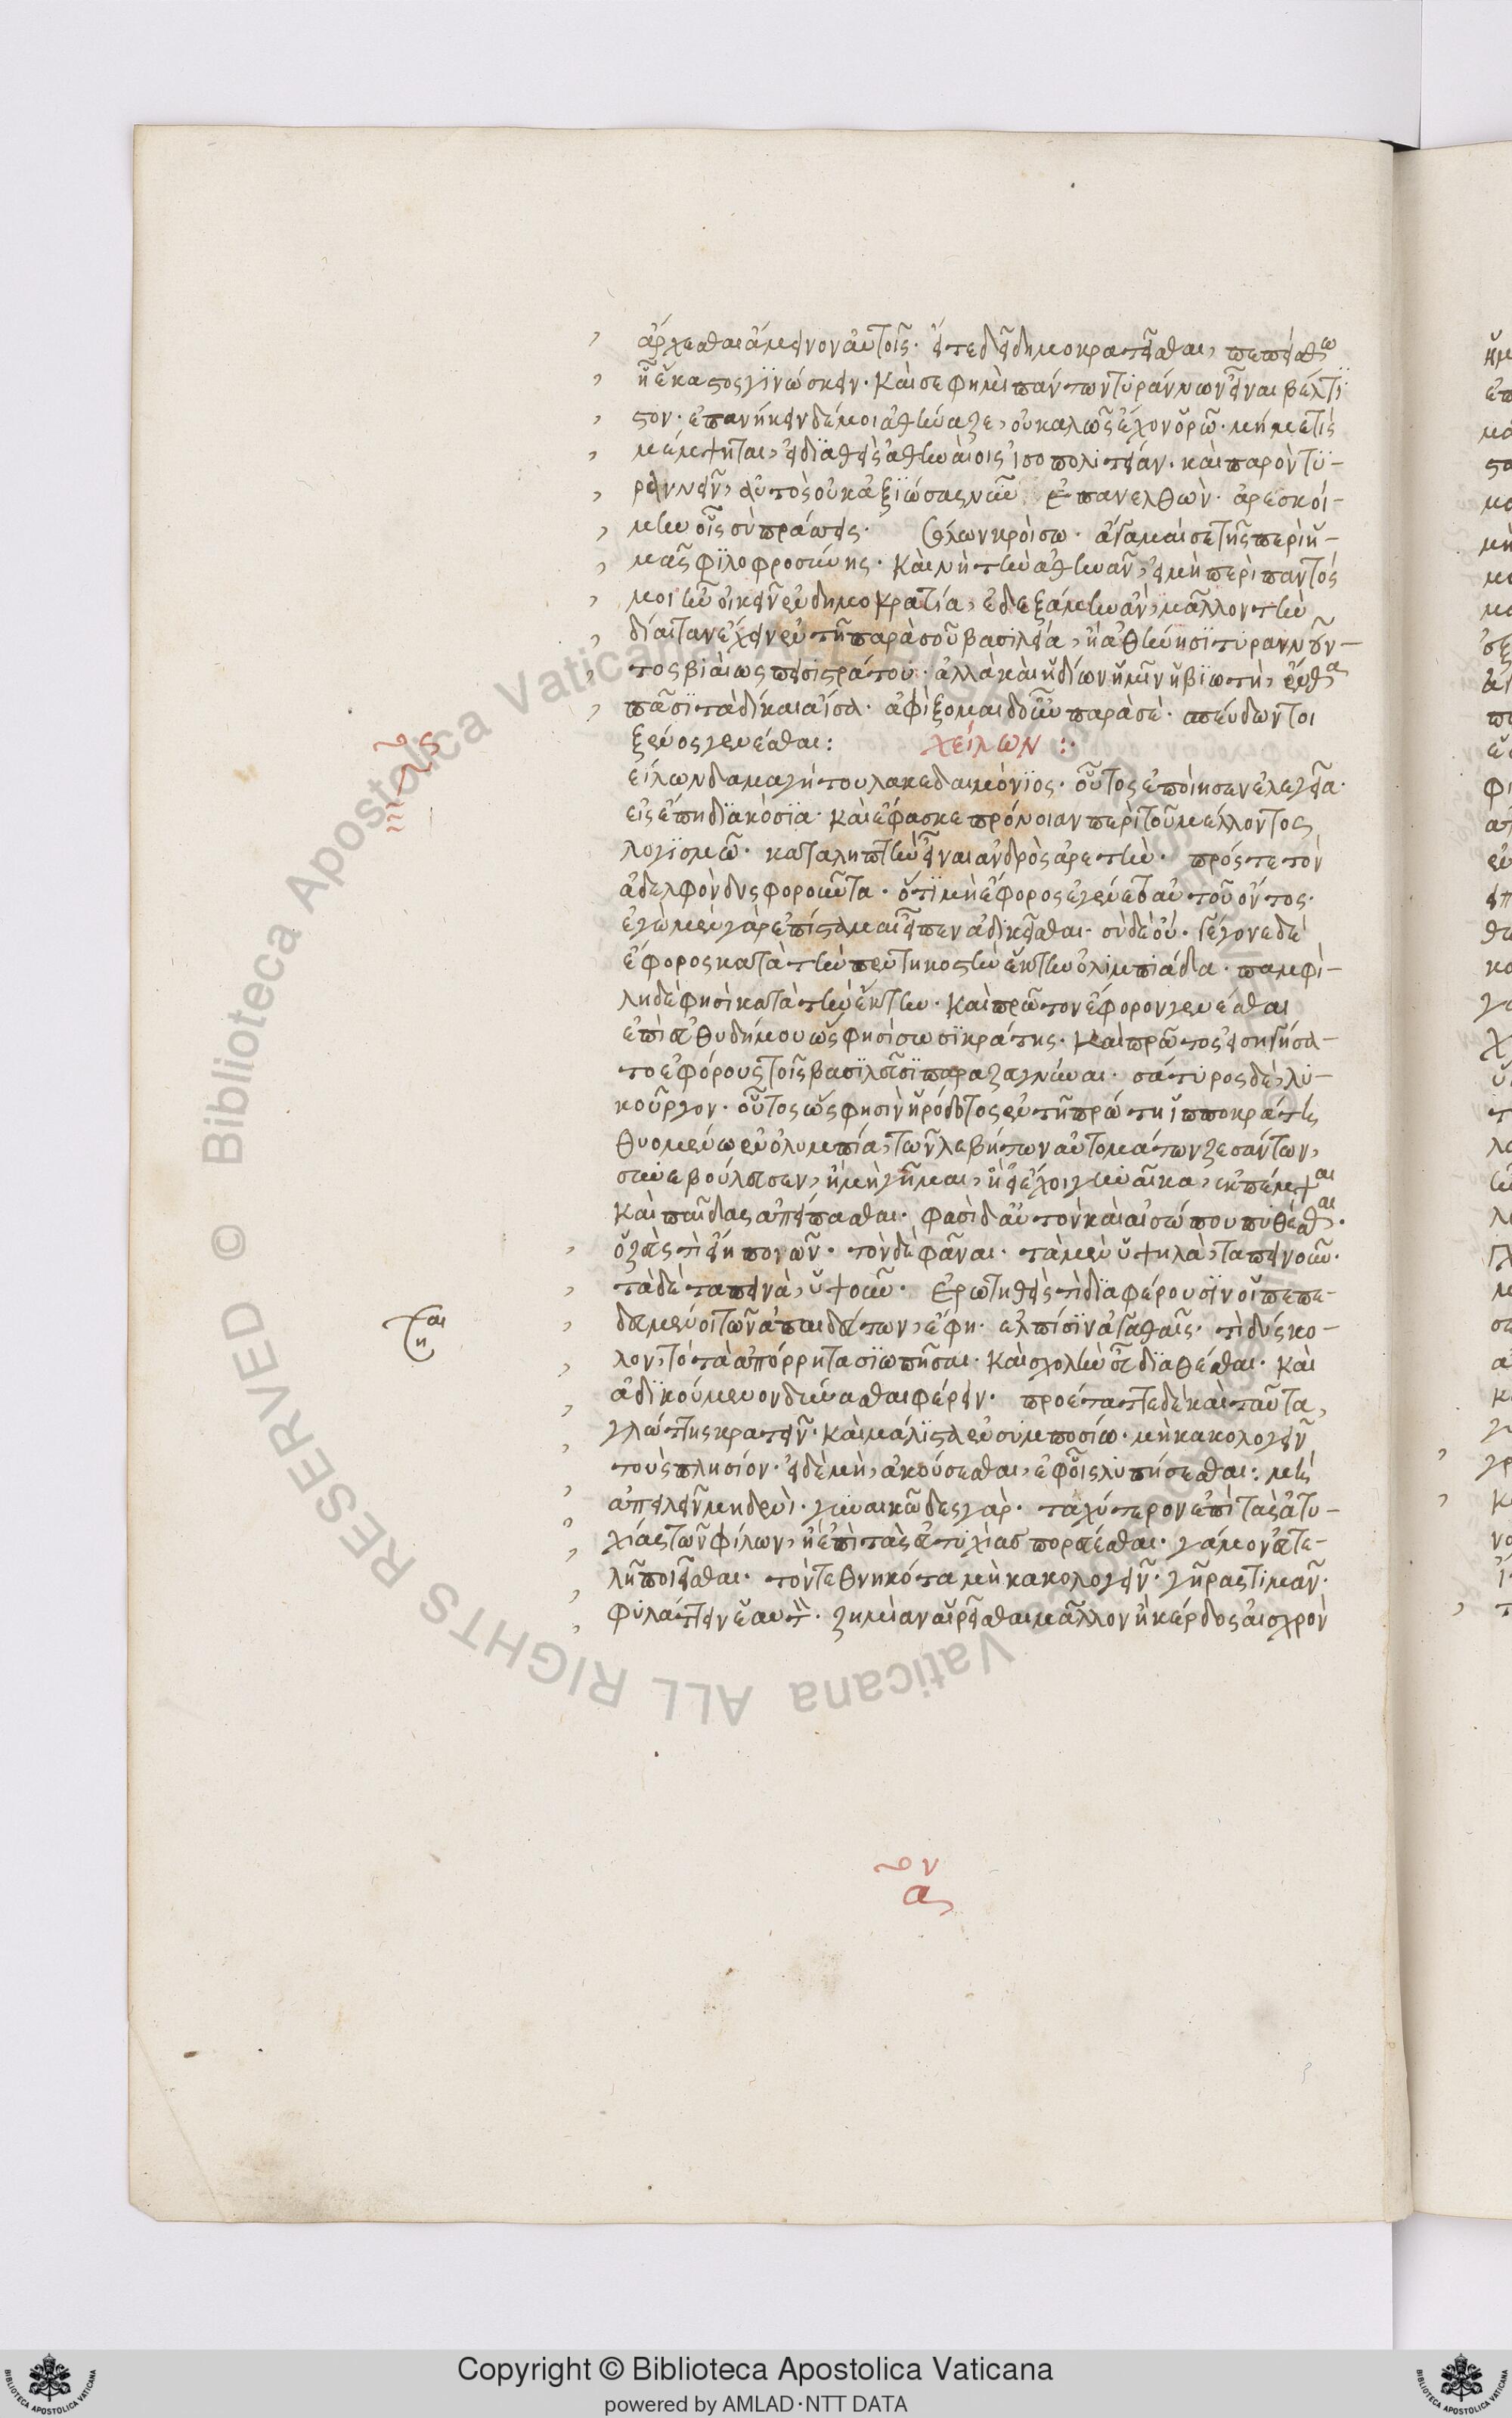 ἄρχεσθαι ἄμεινον αὐτοῖς. εἴτε δεῖ δημοκρατεῖσθαι, πεπείσθω
ᾗ ἕκαστος γϊνώσκειν. Καὶ σὲ φημὶ πάντων τυράννων εἶναι βέλτϊ
στον. ἐπανήκειν δέ μοι ἀθήναζε, οὐ καλῶς ἔχον ὁρῶ. μή με τὶς
μέμψηται, εἰ δϊαθεὶς ἀθηναίοις ἰσοπολιτείαν. καὶ παρὸν τϋ-
ραννεῖν, αὐτὸς οὐκ ἀξϊώσας νῦν ἐπανελθὼν. ἀρεσκοί-
μην οἷς σὺ πράσσεις. Σόλων κροίσω. ἄγαμαί σε τῆς περὶ ἡ-
μᾶς φϊλοφροσύνης. Καὶ νὴ τὴν ἀθηνᾶν, εἰ μὴ περὶ παντός
μοι ἦν οἰκεῖν ἐν δημοκρατία, ἐδεξάμην ἂν, μᾶλλον τὴν
δίαιταν ἔχειν ἐν τῆ παρὰ σοῦ βασιλεία, ἢ ἀθήνησϊ τυραννοῦν-
τος βιαίως πεισιστράτου. ἀλλὰ καὶ ἡδίων ἡμῖν ἡ βϊωτὴ, ἔνθα
πᾶσϊ τὰ δίκαια ἴσα. ἀφίξομαι δ' οὖν παρὰ σὲ. σπεύδων τοι
ξένος γενέσθαι: χείλων :·
είλων δαμαγήτου λακεδαιμόνϊος. οὗτος ἐποίησεν ἐλεγεῖα.
εἰς ἔπη δϊακόσϊα. καὶ ἔφασκε πρόνοιαν περὶ τοῦ μέλλοντος
λογϊσμῶ. καταληπτὴν εἶναι ἀνδρὸς ἀρετὴν. πρός τε τὸν
ἀδελφὸν δυσφοροῦντα. ὅτϊ μὴ ἔφορος ἐγένετο αὐτοῦ ὄντος.
ἐγὼ μὲν γὰρ ἐπίσταμαι εἶπεν ἀδικεῖσθαι. σὺ δὲ οὔ. Γέγονε δὲ
ἔφορος κατὰ τὴν πεντηκοστὴν ἕκτην ὀλιμπιάδα. παμφί-
λη δὲ φησὶ κατὰ τὴν ἕκτην. Καὶ πρῶτον ἔφορον γενέσθαι
ἐπὶ εὐθυδήμου ὥς φησὶ σωσϊκράτης. Καὶ πρῶτος εἰσηγήσα-
το ἐφόρους τοῖς βασϊλεῦσϊ παραζευγνύναι. σάτυρος δὲ, λυ-
κοῦργον. οὗτος ὥς φησὶν ἡρόδοτος ἐν τῆ πρώτη ἱπποκράτει
θυομένω ἐν ὀλυμπία, τῶν λεβήτων αὐτομάτων ζεσάντων,
συνεβούλευσεν, ἢ μὴ γῆμαι, ἢ εἰ ἔχοι γυναῖκα, ἐκπέμψαι
καὶ παῖδας ἀπείπασθαι. φασὶ δ' αὐτὸν καὶ αἰσώπου πυθέσθαι.
ὁ ζεὺς τί εἴη ποιῶν. τὸν δὲ φᾶναι. τὰ μὲν ὑψηλὰ, ταπεινοῦν.
τὰ δὲ ταπεινὰ, ὑψοῦν. Ἐρωτηθεὶς τί δϊαφέρουσϊν οἱ πεπαι-
δευμένοι τῶν ἀπαιδεύτων, ἔφη. ἐλπίσϊν ἀγαθαῖς. τί δύσκο-
λον, τό τὰ ἀπόρρητα σϊωπῆσαι. Καὶ σχολὴν εὖ δϊαθέσθαι. Καὶ
ἀδϊκούμενον δύνασθαι φέρειν. προσέταττε δὲ καὶ ταῦτα,
γλώττης κρατεῖν. Καὶ μάλϊστα ἐν συμποσίω. μὴ κακολογεῖν
τοὺς πλησίον. εἰ δὲ μὴ, ἀκούσεσθαι, ἐφ' οἷς λυπήσεσθαι: μὴ
ἀπειλεῖν μηδενὶ. γυναικῶδες γὰρ. ταχύτερον ἐπὶ τὰς ἀτυ-
χίας τῶν φίλων, ἢ ἐπὶ τὰς εὐτυχίας πορεύεσθαι. γάμον εὐτε-
λῆ ποιεῖσθαι. τὸν τεθνηκότα μὴ κακολογεῖν. γῆρας τιμᾶν.
φυλάττειν ἑαυτόν. ζημίαν αἱρεῖσθαι μᾶλλον ἢ κέρδος αἰσχρὸν
Copyright © Biblioteca Apostolica Vaticana
powered by AMLAD·NTT DATA